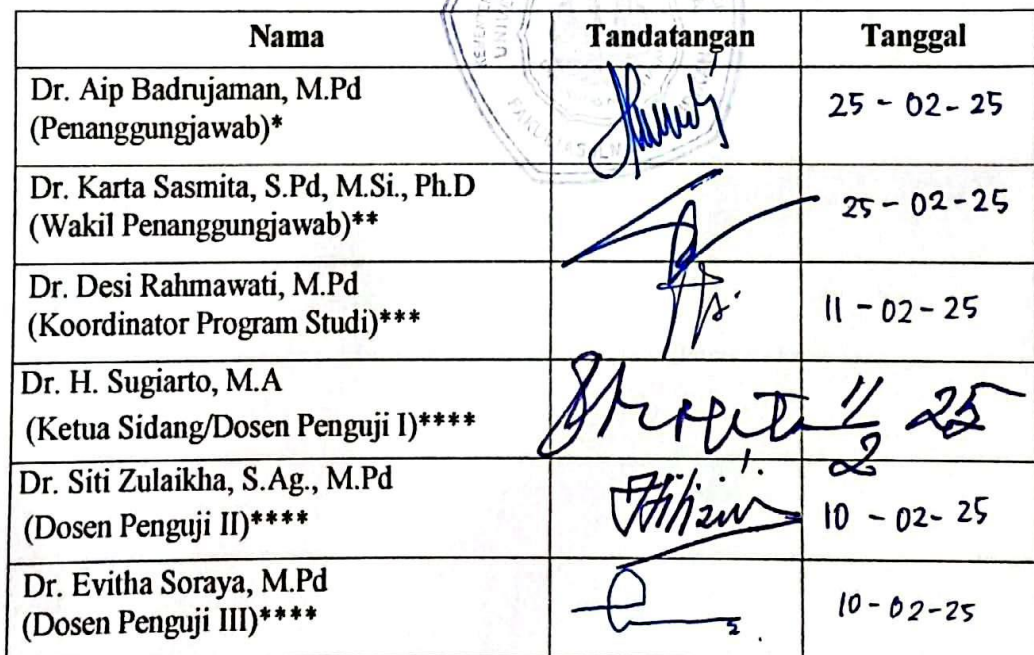 Nama Tandatangan Tanggal
Dr. Aip Badrujaman, M.Pd
(Penanggungjawab)* 25 - 02 - 25
Dr. Karta Sasmita, S.Pd, M.Si., Ph.D
(Wakil Penanggungjawab)** 25 - 02 - 25
Dr. Desi Rahmawati, M.Pd
(Koordinator Program Studi)*** 11 - 02 - 25
Dr. H. Sugiarto, M.A
(Ketua Sidang/Dosen Penguji I)**** 11/2 25
Dr. Siti Zulaikha, S.Ag., M.Pd
(Dosen Penguji II)**** 10 - 02 - 25
Dr. Evitha Soraya, M.Pd
(Dosen Penguji III)**** 10 - 02 - 25